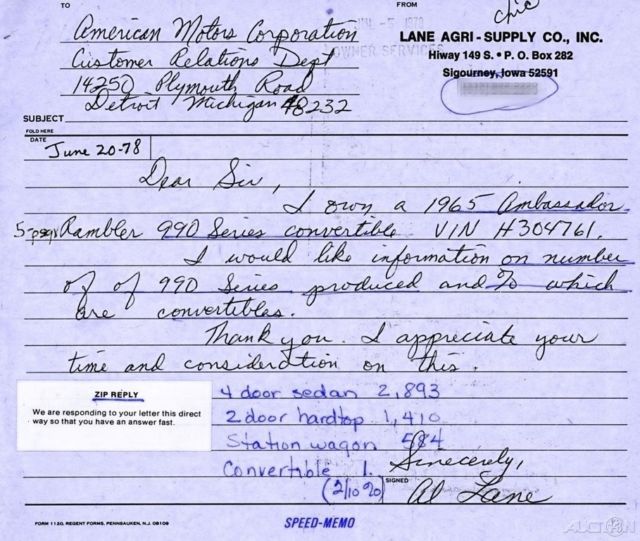 TO
FROM
chic
American Motors Corporation
Customer Relations Dept
14250 Plymouth Road
Detroit Michigan 48232
5 1978
OWNER SERVICES
LANE AGRI-SUPPLY CO., INC.
Hiway 149 S. • P. O. Box 282
Sigourney, Iowa 52591
SUBJECT
FOLD HERE
DATE
June 20-78
Dear Sir,
I own a 1965 Ambassador
Rambler 990 Series convertible VIN H304761.
I would like information on number
of of 990 Series produced and % which
are convertibles.
Thank you. I appreciate your
time and consideration on this.
ZIP REPLY
We are responding to your letter this direct
way so that you have an answer fast.
4 door sedan 2,893
2 door hardtop 1,410
Station wagon 584
Convertible 1.
(2/10%)
Sincerely,
SIGNED
Al Lane
FORM 1120, REGENT FORMS, PENNSAUKEN, N.J. 08109
SPEED-MEMO